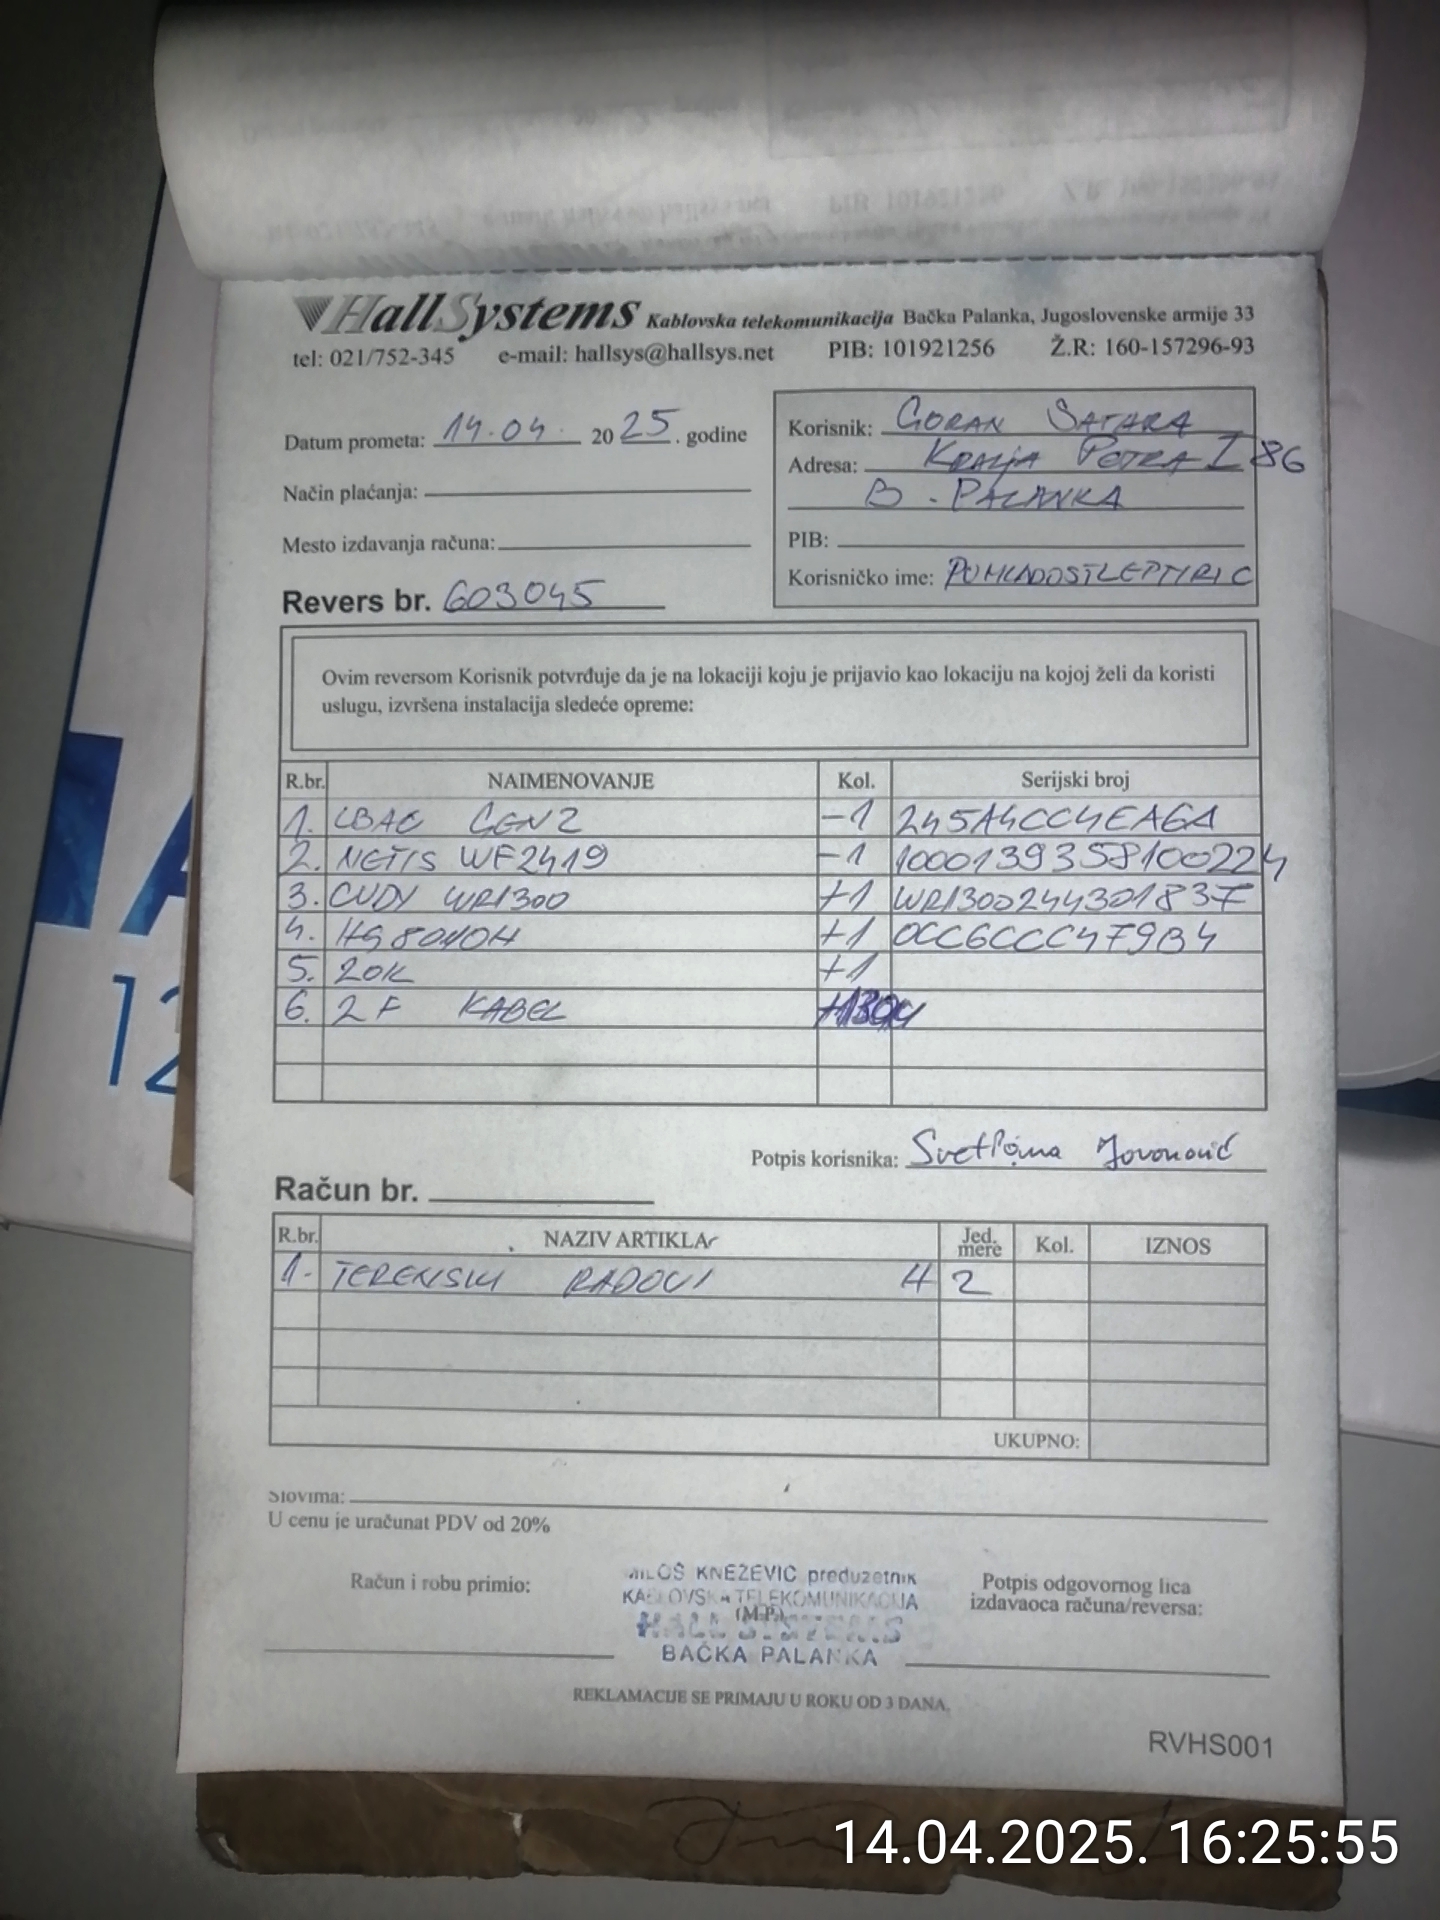 HallSystems Kablovska telekomunikacija Bačka Palanka, Jugoslovenske armije 33
tel: 021/752-345 e-mail: hallsys@hallsys.net PIB: 101921256 Ž.R: 160-157296-93
Datum prometa: 14.04. 2025. godine
Način plaćanja:
Mesto izdavanja računa:
Revers br. 603045
Korisnik: GORAN SATARA
Adresa: KRALJA PETRA I 86
B. PALANKA
PIB:
Korisničko ime: PUMLADOSTLEPTIRIC
Ovim reversom Korisnik potvrđuje da je na lokaciji koju je prijavio kao lokaciju na kojoj želi da koristi
uslugu, izvršena instalacija sledeće opreme:
R.br. NAIMENOVANJE Kol. Serijski broj
1. LBAC GEN2 -1 245A4CC4EA6A
2. NETIS WF2419 -1 1000139358100224
3. CUDY WR1300 +1 WR1300244301837
4. HG8010H +1 0CC6CCC479B4
5. ZOK +1
6. 2F KABEL
Potpis korisnika: Svetlana Jovanović
Račun br.
R.br. NAZIV ARTIKLA Jed. mere Kol. IZNOS
1. TERENSKI RADOVI H 2
UKUPNO:
Slovima:
U cenu je uračunat PDV od 20%
Račun i robu primio:
MILOŠ KNEŽEVIĆ preduzetnik
KABLOVSKA TELEKOMUNIKACIJA
(M.P.)
HALL SYSTEMS
BAČKA PALANKA
Potpis odgovornog lica
izdavaoca računa/reversa:
REKLAMACIJE SE PRIMAJU U ROKU OD 3 DANA.
RVHS001
14.04.2025. 16:25:55